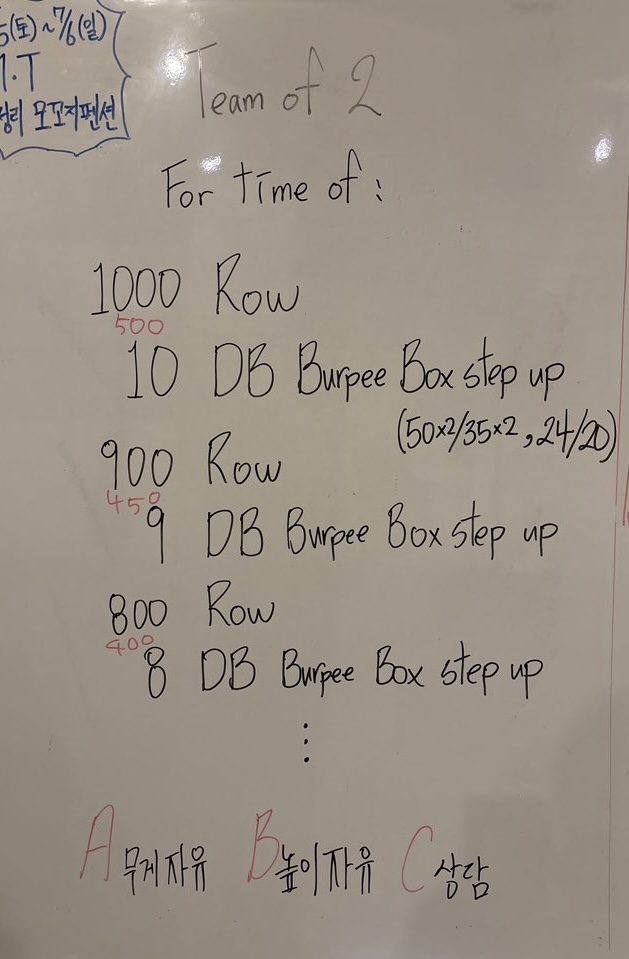 5(토)~7/6(일)
M.T
모꼬지펜션
Team of 2
For time of :
1000 Row
500
10 DB Burpee Box step up
(50×2/35×2, 24/20)
900 Row
450
9 DB Burpee Box step up
800 Row
400
8 DB Burpee Box step up
⋮
A 무게자유 B 높이자유 C 상담